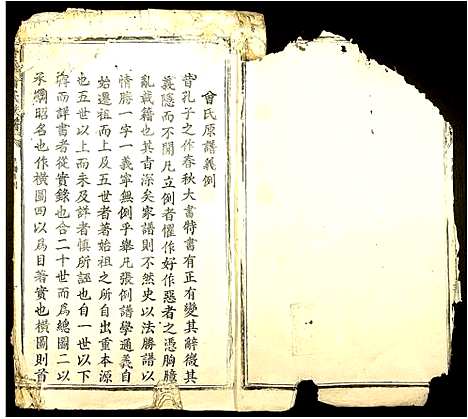 曾氏原譜義例
昔孔子之作春秋大書特書有正有變其辭微其
義隱而不開凡立例者懼作好作惡者之憑胸臆
亂載籍也其旨深矣家譜則不然史以法勝譜以
情勝一字一義寧無例乎舉凡張例譜學通義自
始遷祖而上及五世者著始祖之所自出重本源
也五世以上而未及詳者慎所誣也自一世以下
牌而詳書者從實錄也合二十世而爲總圖二以
承綱昭名也作橫圖四以爲目著實也橫圖則首